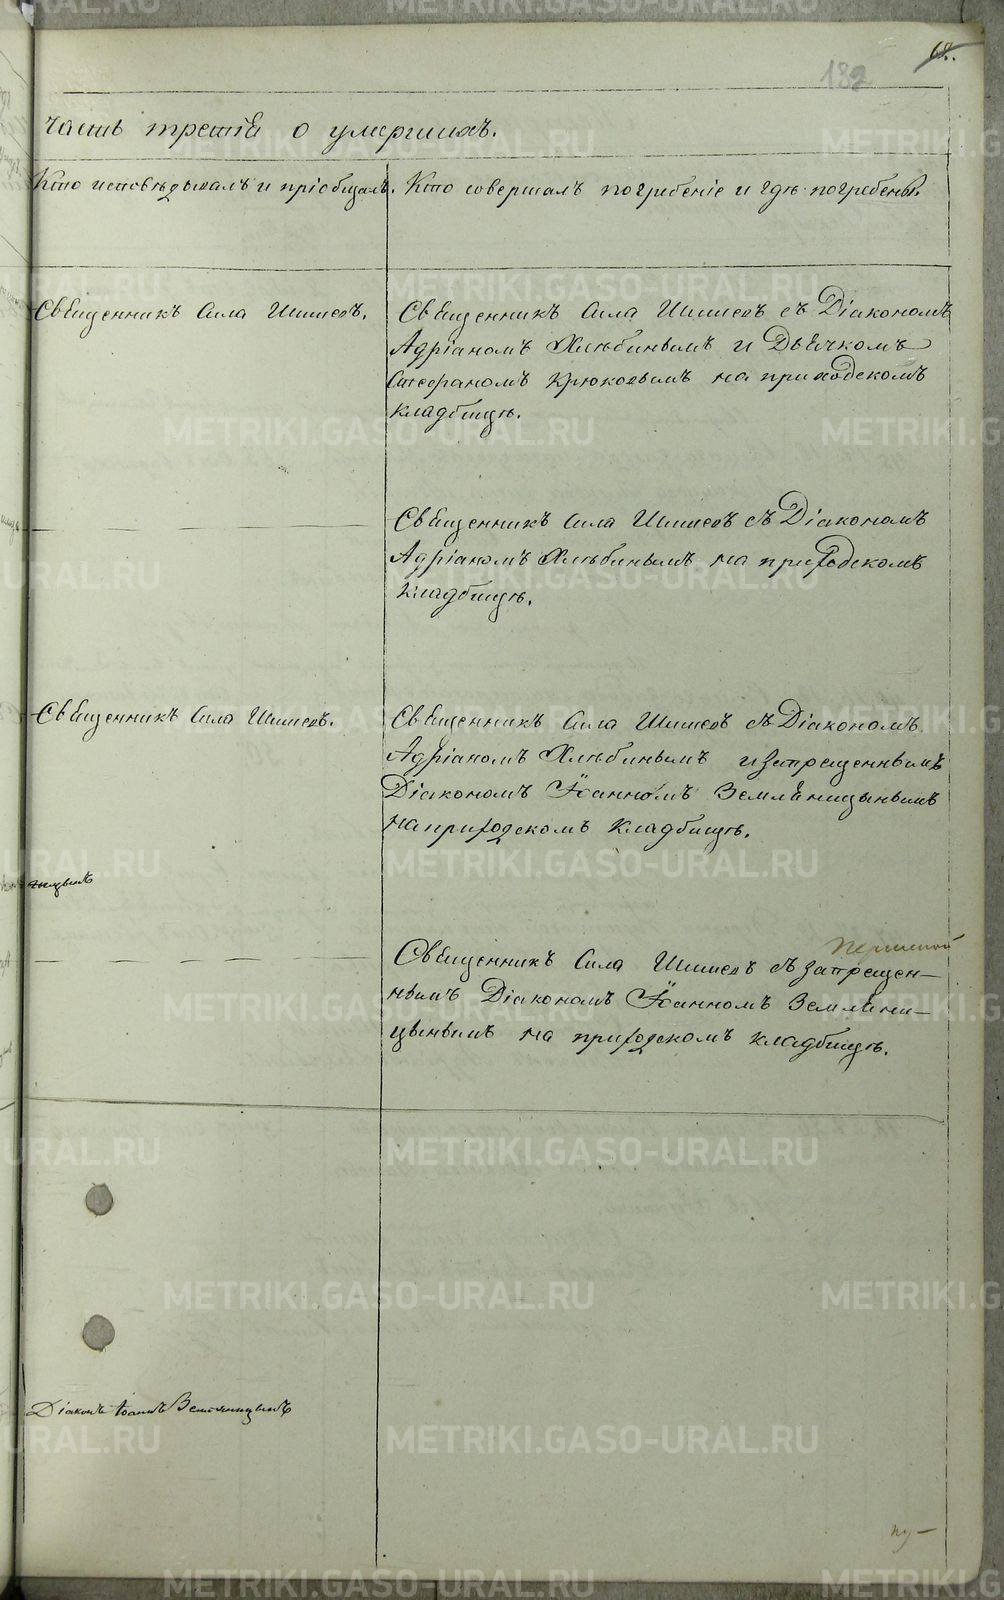 182
68.
часть третія о умершихъ.
Кто исповѣдывалъ и пріобщалъ.
Кто совершалъ погребеніе и гдѣ погребены.
Священникъ Сила Шишевъ.
Священникъ Сила Шишевъ съ Діакономъ
Адріаномъ Хлѣбинымъ и Дьячкомъ
Стефаномъ Крюковымъ на приходскомъ
кладбищѣ.
Священникъ Сила Шишевъ съ Діакономъ
Адріаномъ Хлѣбинымъ на приходскомъ
кладбищѣ.
Священникъ Сила Шишевъ.
Священникъ Сила Шишевъ съ Діакономъ
Адріаномъ Хлѣбинымъ и запрещеннымъ
Діакономъ Іоанномъ Земляницынымъ
на приходскомъ кладбищѣ.
ницынъ
Священникъ Сила Шишевъ съ запрещен-
нымъ Діакономъ Іоанномъ Земляни-
цынымъ на приходскомъ кладбищѣ.
Діаконъ Іоаннъ Земляницынъ
METRIKI.GASO-URAL.RU